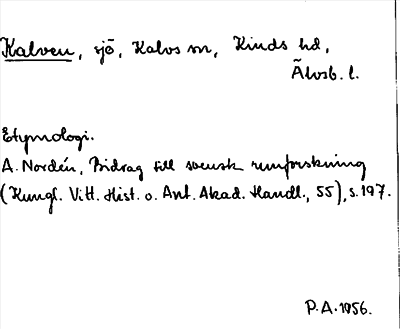 Kalven, sjö, Kalvs sn, Kinds hd,
Älvsb. l.
Etymologi.
A. Nordén, Bidrag till svensk runforskning
(Kungl. Vitt. Hist. o. Ant. Akad. Handl., 55), s. 197.
P.A. 1956.